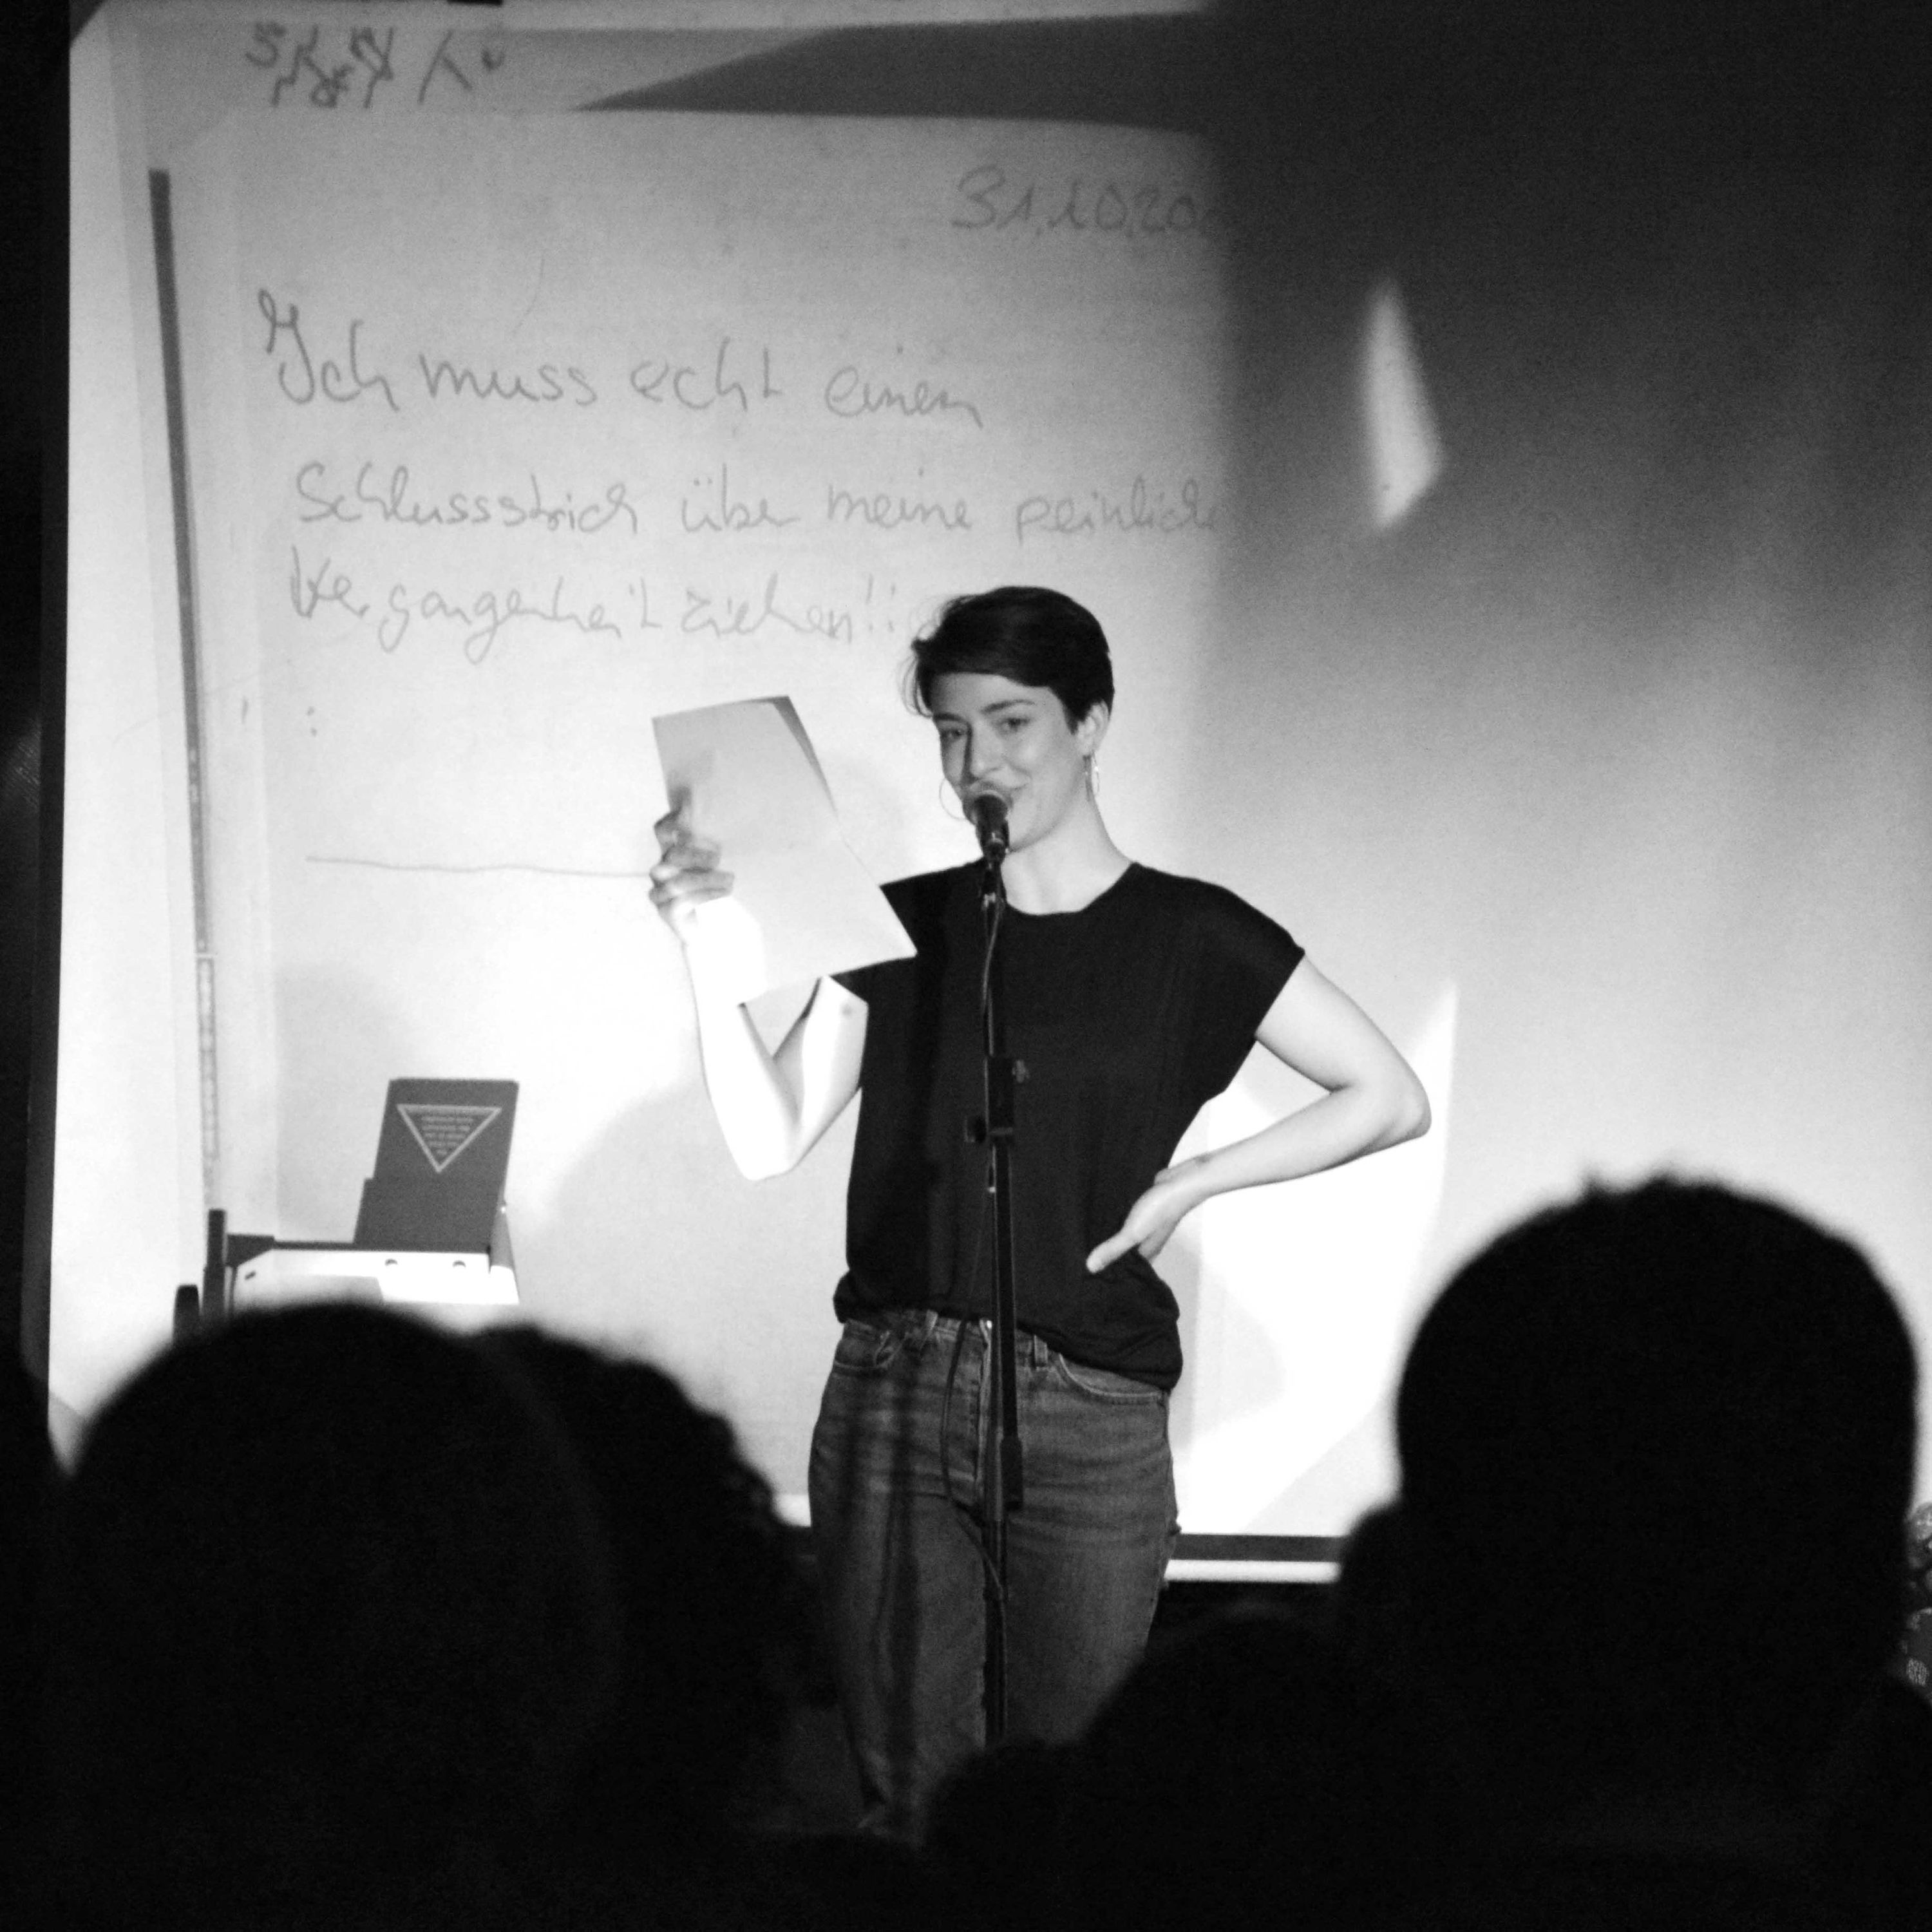 31.10.20
Ich muss echt einen
Schlussstrich über meine peinliche
Vergangenheit ziehen!!